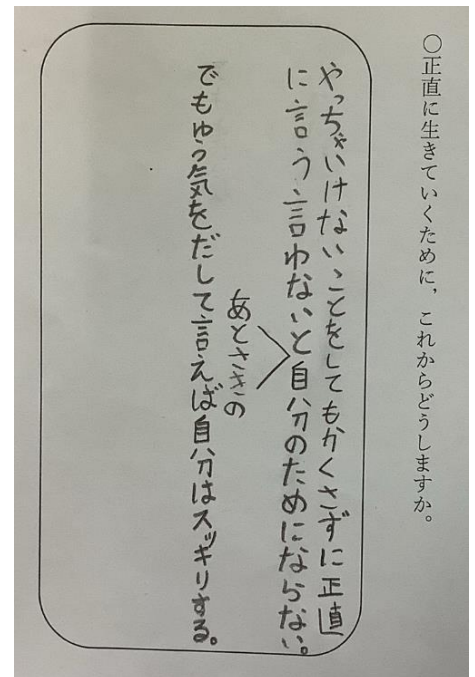 ○正直に生きていくために，これからどうしますか。
やっちゃいけないことをしてもかくさずに正直
に言う言わないと自分のためにならない。
あとさきの
でもゆう気をだして言えば自分はスッキリする。